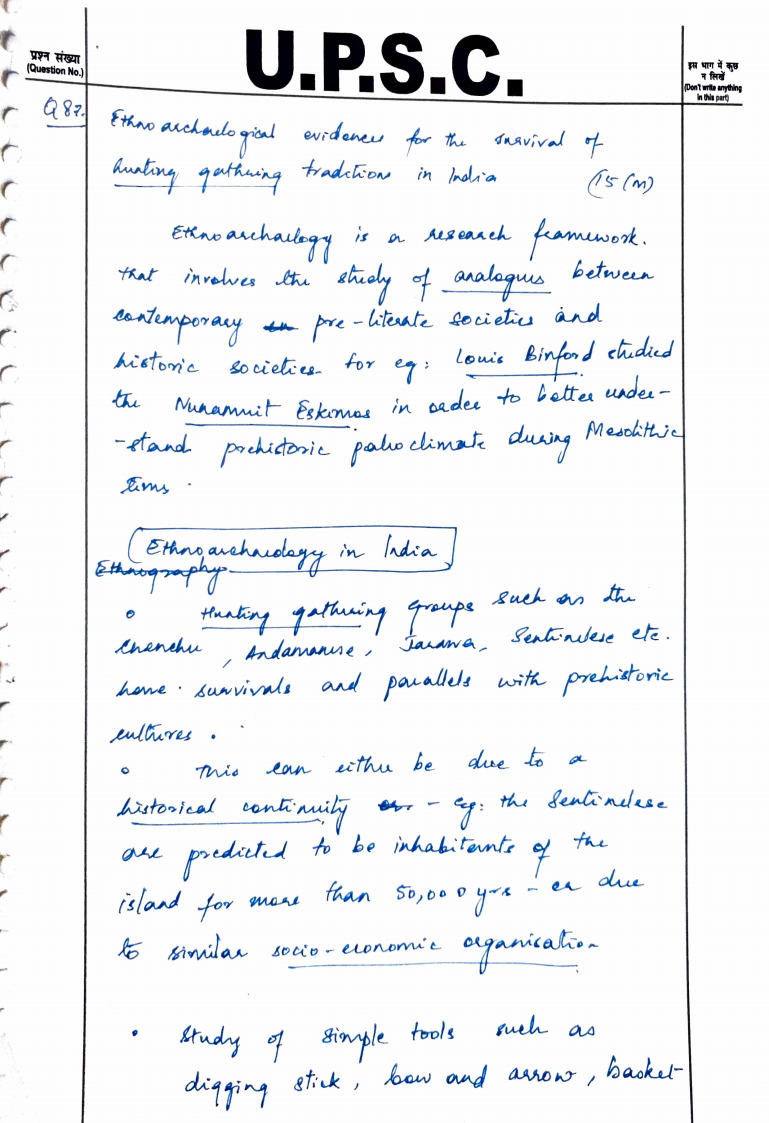 U.P.S.C.
प्रश्न संख्या
(Question No.)
इस भाग में कुछ
न लिखें
(Don't write anything
in this part)
Q 87.
Ethnoarchaeological evidences for the survival of
hunting gathering traditions in India (15 (M)
Ethnoarchaeology is a research framework.
that involves the study of analogues between
contemporary pre-literate societies and
historic societies for eg: Louis Binford studied
the Nunamuit Eskimos in order to better under-
-stand prehistoric paleoclimate during Mesolithic
times.
Ethnoarchaeology in India
Ethnography
Hunting gathering groups such as the
Chenchu, Andamanese, Jarawa, Sentinelese etc.
have survivals and parallels with prehistoric
cultures.
This can either be due to a
historical continuity or - eg: the Sentinelese
are predicted to be inhabitants of the
island for more than 50,000 yrs - or due
to similar socio-economic organisation
• Study of simple tools such as
digging stick, bow and arrow, basket-